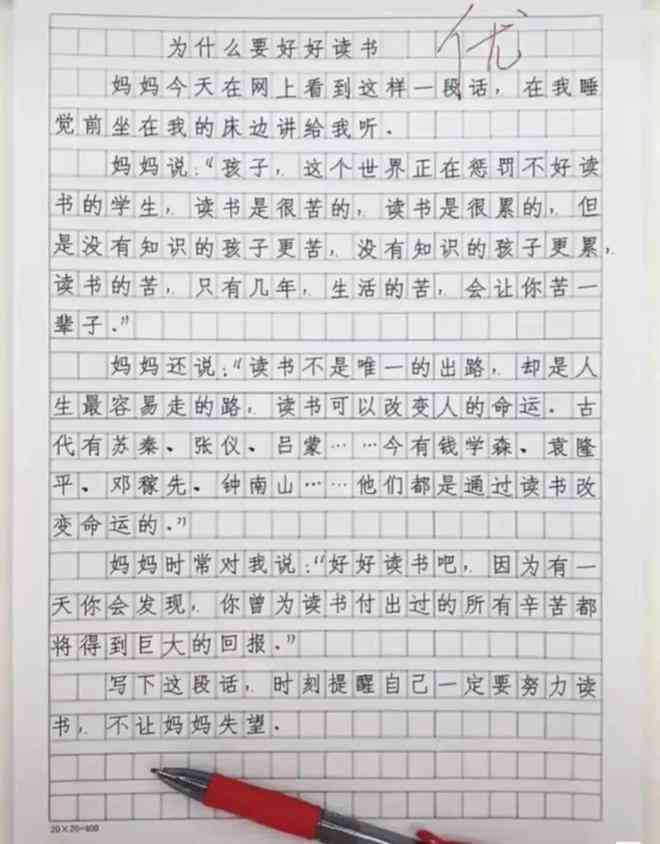 为什么要好好读书
优
妈妈今天在网上看到这样一段话，在我睡
觉前坐在我的床边讲给我听．
妈妈说：“孩子，这个世界正在惩罚不好读
书的学生，读书是很苦的，读书是很累的，但
是没有知识的孩子更苦，没有知识的孩子更累，
读书的苦，只有几年，生活的苦，会让你苦一
辈子．”
妈妈还说：“读书不是唯一的出路，却是人
生最容易走的路，读书可以改变人的命运．古
代有苏秦、张仪、吕蒙……今有钱学森、袁隆
平、邓稼先、钟南山……他们都是通过读书改
变命运的．”
妈妈时常对我说：“好好读书吧，因为有一
天你会发现，你曾为读书付出过的所有辛苦都
将得到巨大的回报．”
写下这段话，时刻提醒自己一定要努力读
书，不让妈妈失望．
20×20=400